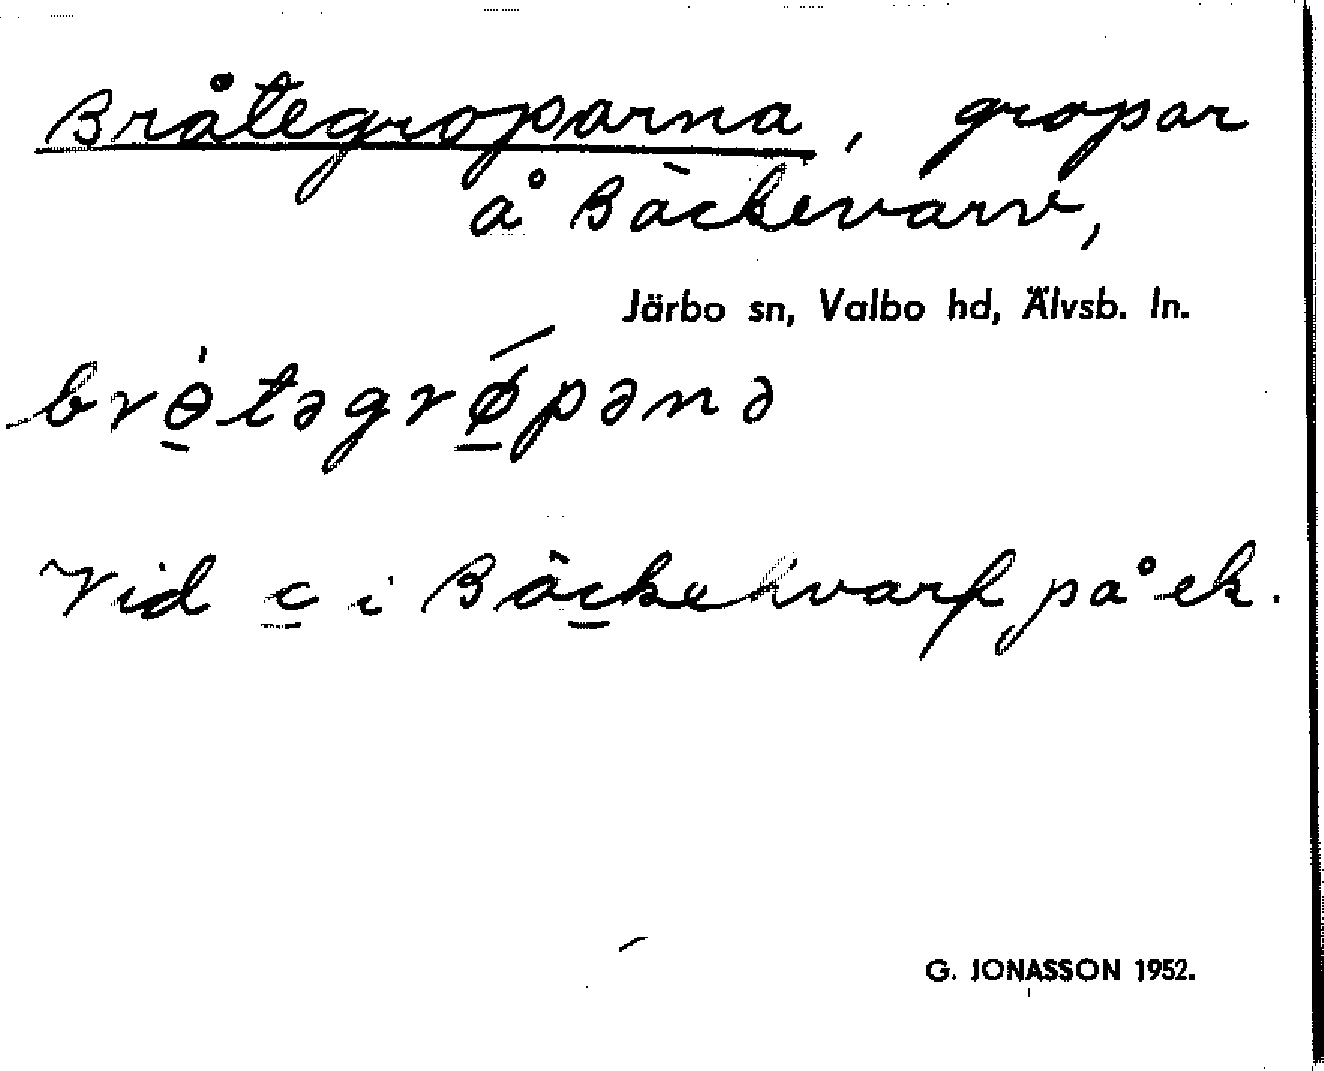 Bråtegroparna, gropar
å Bäckevarv,
Järbo sn, Valbo hd, Älvsb. ln.
brɵ̀təgrǿpənə
Vid c i Bäckehvarf på ek.
G. JONASSON 1952.